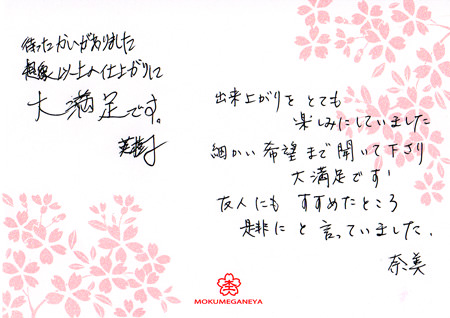 待ったかいがありました
想象以上の仕上がりに
大満足です。
出来上がりを とても
楽しみにしていました
細かい希望まで聞いて下さり
大満足です!
友人にも すすめたところ
是非に と言っていました.
奈美
MOKUMEGANEYA